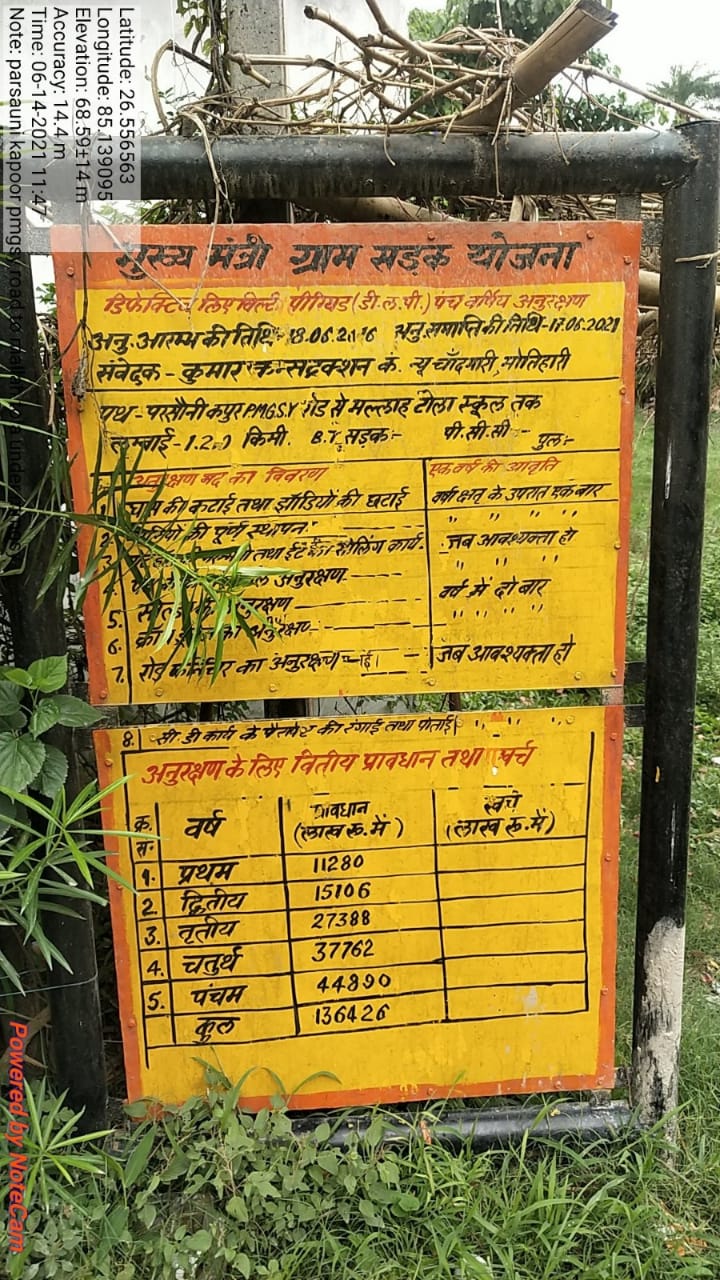 Latitude: 26.556563
Longitude: 85.139095
Elevation: 68.59±14 m
Accuracy: 14.4 m
Time: 06-14-2021 11:47
Note: parsauni kapoor pmgsy road to mallah
मुख्य मंत्री ग्राम सड़क योजना
डिफेक्टिव लिए पीरियड (डी.ल.पी.) पंच वर्षिय अनुरक्षण
अनु. आरम्भ की तिथि- 18.06.2016 अनु. समाप्ति की तिथि-17.06.2021
संवेदक - कुमार कन्सट्रक्शन कं. न्यू चाँदमारी, मोतिहारी
पथ - परसौनी कपुर P.M.G.S.Y रोड से मल्लाह टोला स्कूल तक
लम्बाई - 1.2 किमी. B.T सड़क:- पी.सी.सी:- पुल:-
अनुरक्षण मद का विवरण एक वर्ष की आवृति
1. घास की कटाई तथा झाड़ियों की छटाई वर्षा ऋतु के उपरांत एक बार
2. की पूर्ण स्थापन " " " "
3. तथा ईट का सोलिंग कार्य. जब आवश्यकता हो
4. अनुरक्षण " " " "
5. वर्ष में दो बार
6. का अनुरक्षण " " " "
7. रोड फर्निचर का अनुरक्षण जब आवश्यकता हो
8. सी.डी कार्य के पैरापेट की रंगाई तथा पोताई " " " "
अनुरक्षण के लिए वितीय प्रावधान तथा खर्च
क्र. स. वर्ष प्रावधान (लाख रू. में) खर्च (लाख रू. में)
1. प्रथम 11280
2. द्वितीय 15106
3. तृतीय 27388
4. चतुर्थ 37762
5. पंचम 44890
कुल 136426
Powered by NoteCam